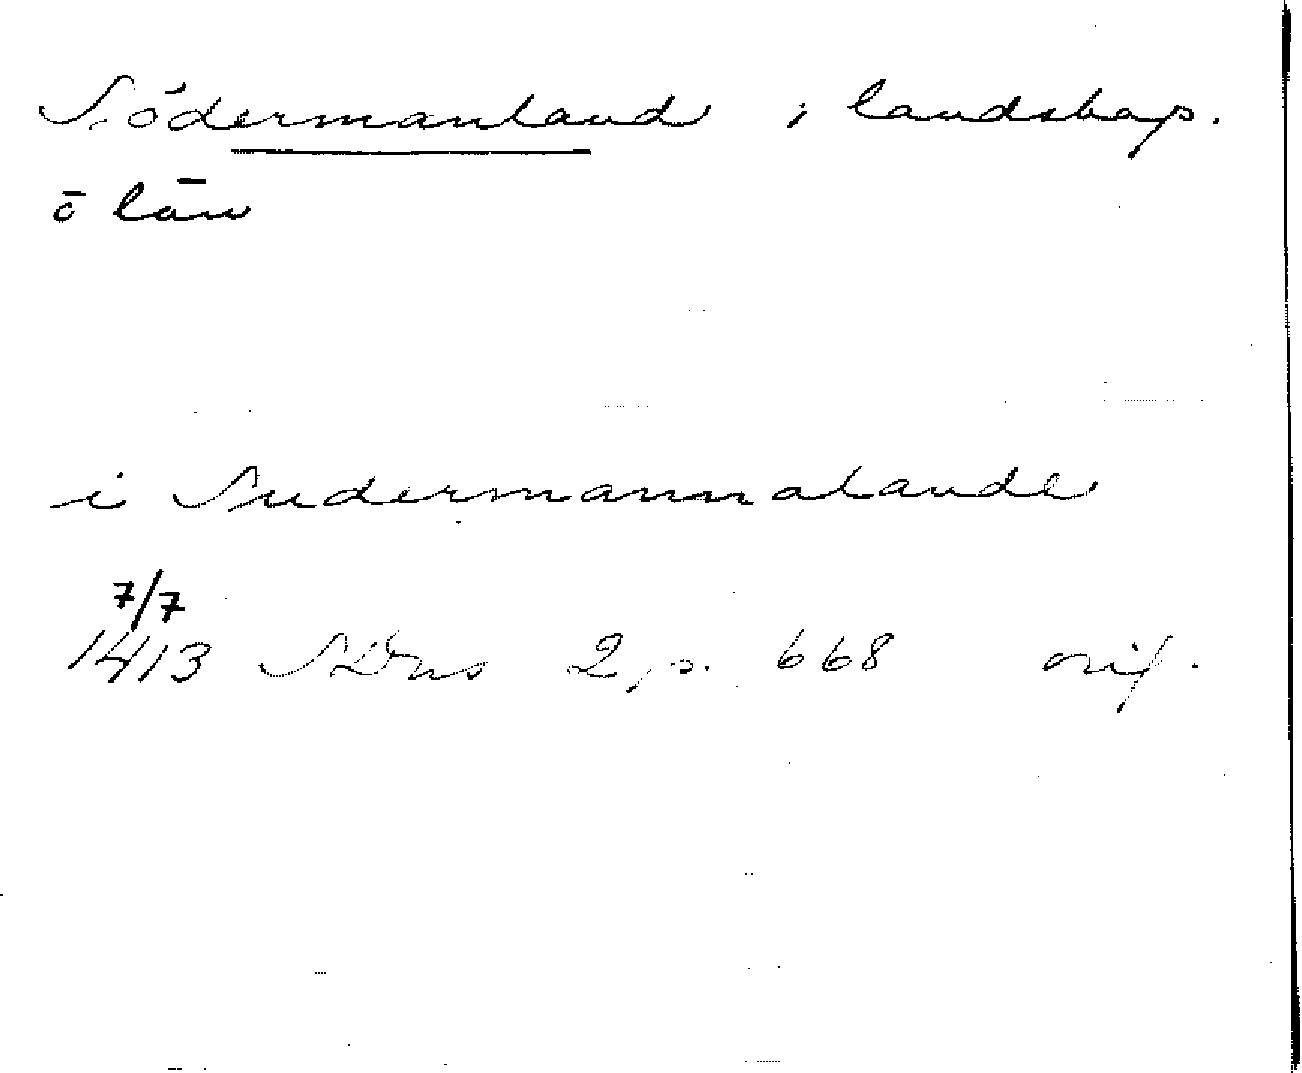 Södermanland ; landskap.
o län
i Sudermannalande
7/7
1413 SDns 2, s. 668 orig.